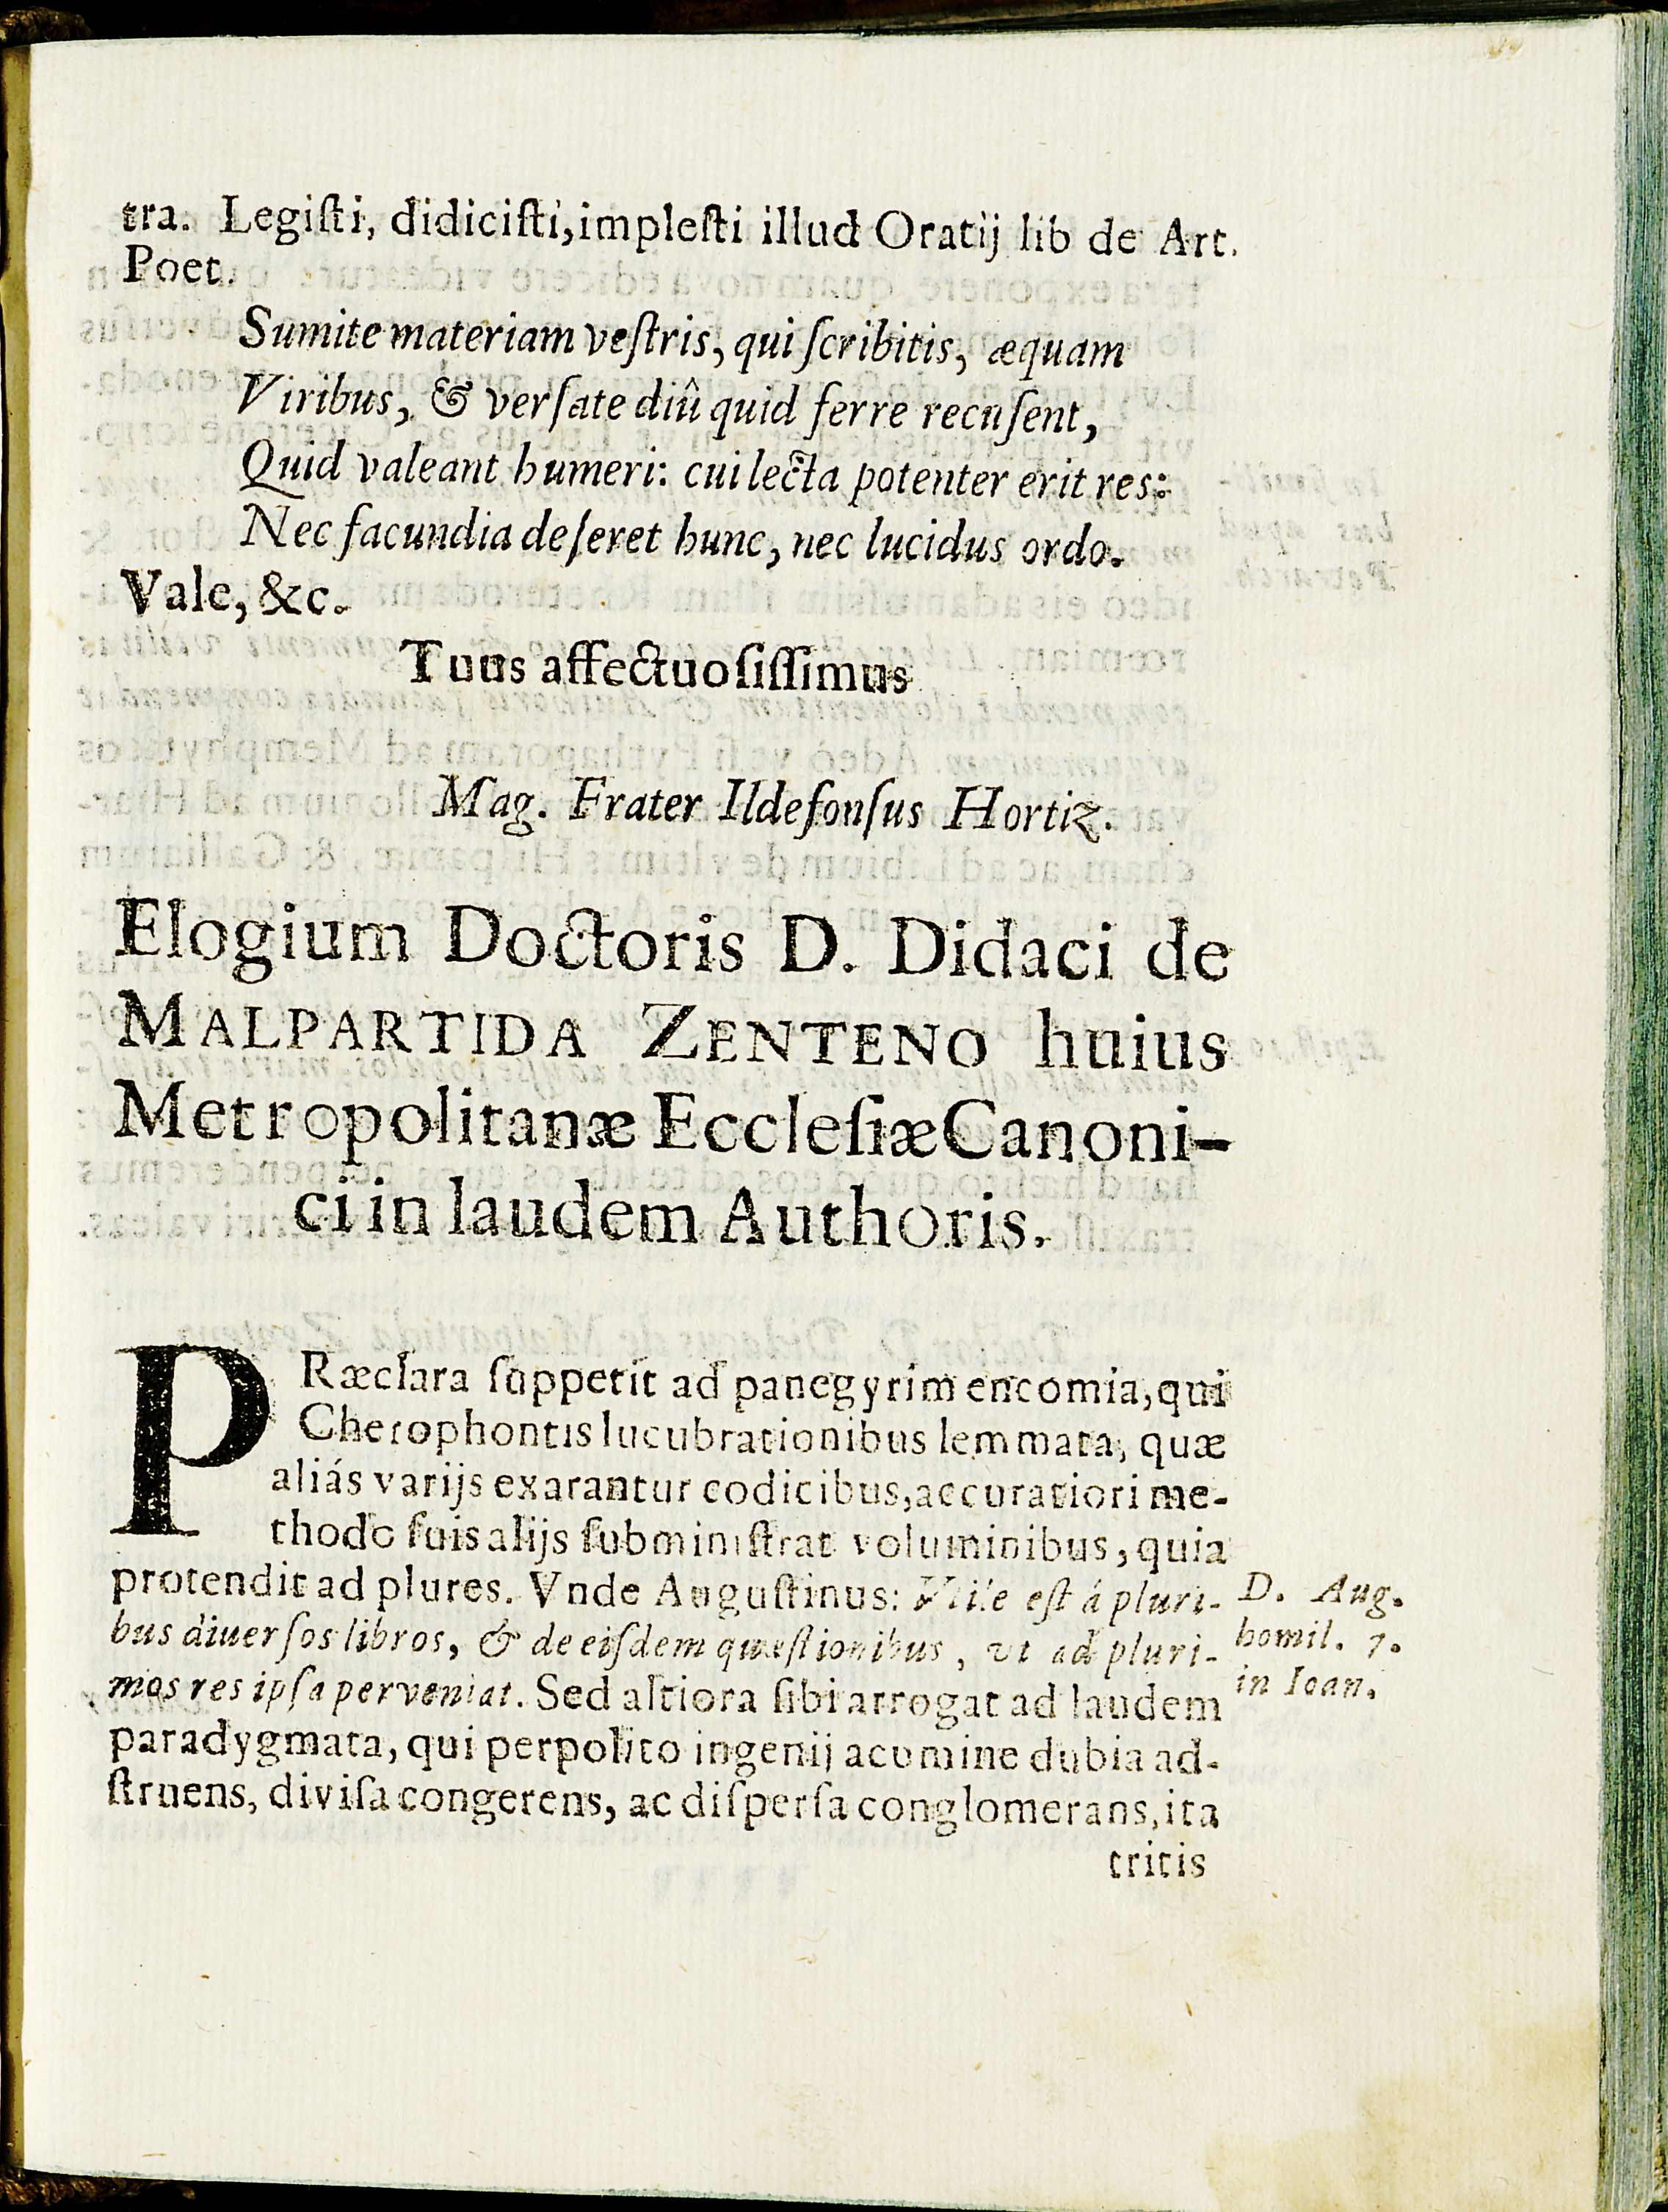 tra. Legiſti, didiciſti, impleſti illud Oratij lib de Art.
Poet.
Sumite materiam veſtris, qui ſcribitis, æquam
Viribus, & verſate diû quid ferre recuſent,
Quid valeant humeri: cui lecta potenter erit res:
Nec facundia deſeret hunc, nec lucidus ordo.
Vale, &c.
Tuus affectuoſiſſimus
Mag. Frater Ildefonſus Hortiz.
Elogium Doctoris D. Didaci de
MALPARTIDA ZENTENO huius
Metropolitanæ Eccleſiæ Canoni-
ci in laudem Authoris.
PRæclara ſuppetit ad panegyrim encomia, qui
Cherophontis lucubrationibus lemmata, quæ
aliás varijs exarantur codicibus, accuratiori me-
thodo ſuis alijs ſubminiſtrat voluminibus, quia
protendit ad plures. Vnde Auguſtinus: Vtile eſt á pluri-
bus diuerſos libros, & de eiſdem quæſtionibus, vt ad pluri-
mos res ipſa perveniat. Sed altiora ſibi arrogat ad laudem
paradygmata, qui perpolito ingenij acumine dubia ad-
ſtruens, diviſa congerens, ac diſperſa conglomerans, ita
tritis
D. Aug.
homil. 7.
in Ioan.